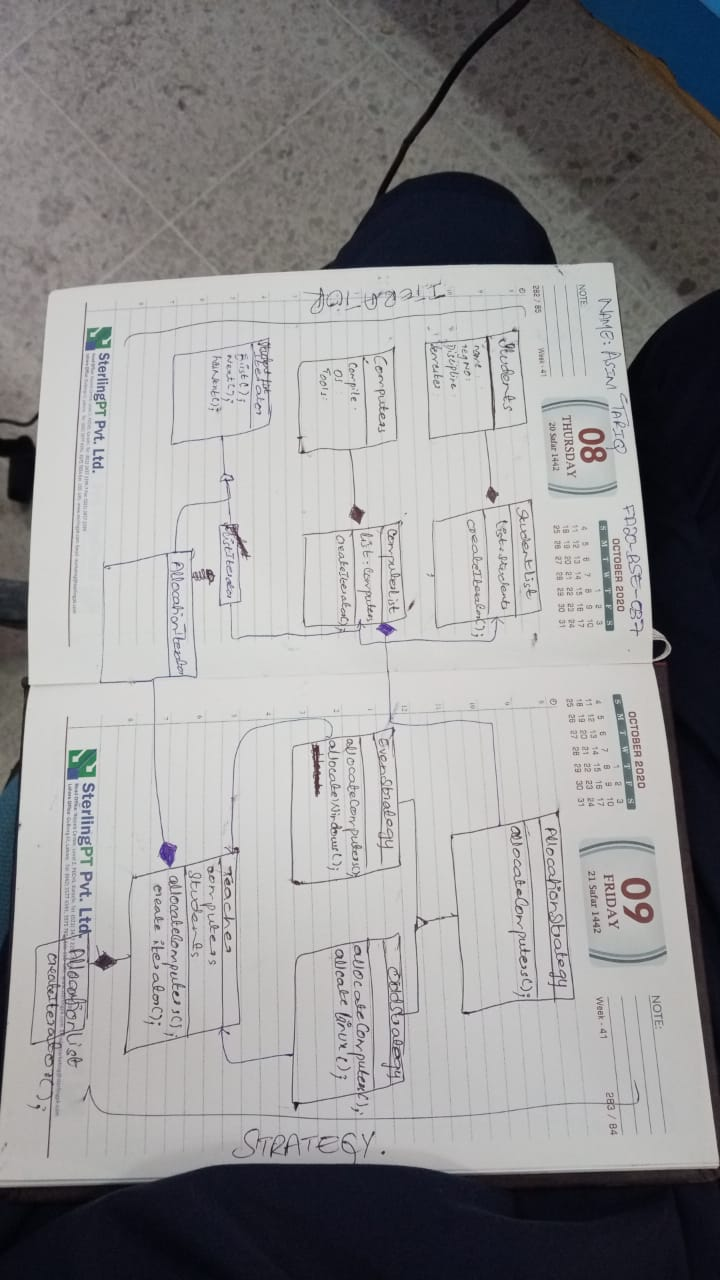 NAME: ASIM TARIQ
FA20-BSE-087
NOTE
Week - 41
282 / 85
08
THURSDAY
20 Safar 1442
OCTOBER 2020
S M T W T F S
1 2 3
4 5 6 7 8 9 10
11 12 13 14 15 16 17
18 19 20 21 22 23 24
25 26 27 28 29 30 31
Students
name:
regNO:
Discipline:
Semester:
StudentList
List:Students
createIterator();
Computers
Compile:
OS:
Tools:
ComputerList
list:Computers
createIterator();
Iterator
First();
Next();
hasNext();
ListIterator
AllocationIterator
ITERATOR
SterlingPT Pvt. Ltd.
OCTOBER 2020
S M T W T F S
1 2 3
4 5 6 7 8 9 10
11 12 13 14 15 16 17
18 19 20 21 22 23 24
25 26 27 28 29 30 31
09
FRIDAY
21 Safar 1442
NOTE:
Week - 41
283 / 84
AllocationStrategy
allocateComputers();
EvenStrategy
allocateComputers();
allocateWindows();
OddStrategy
allocateComputers();
allocate linux();
Teacher
Computers
Students
allocateComputers();
create iterator();
AllocationList
createIterator();
STRATEGY.
SterlingPT Pvt. Ltd.